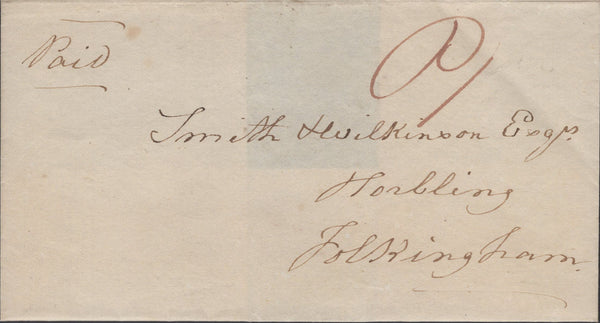 Paid
Smith & Wilkinson Esqrs.
Horbling
Folkingham